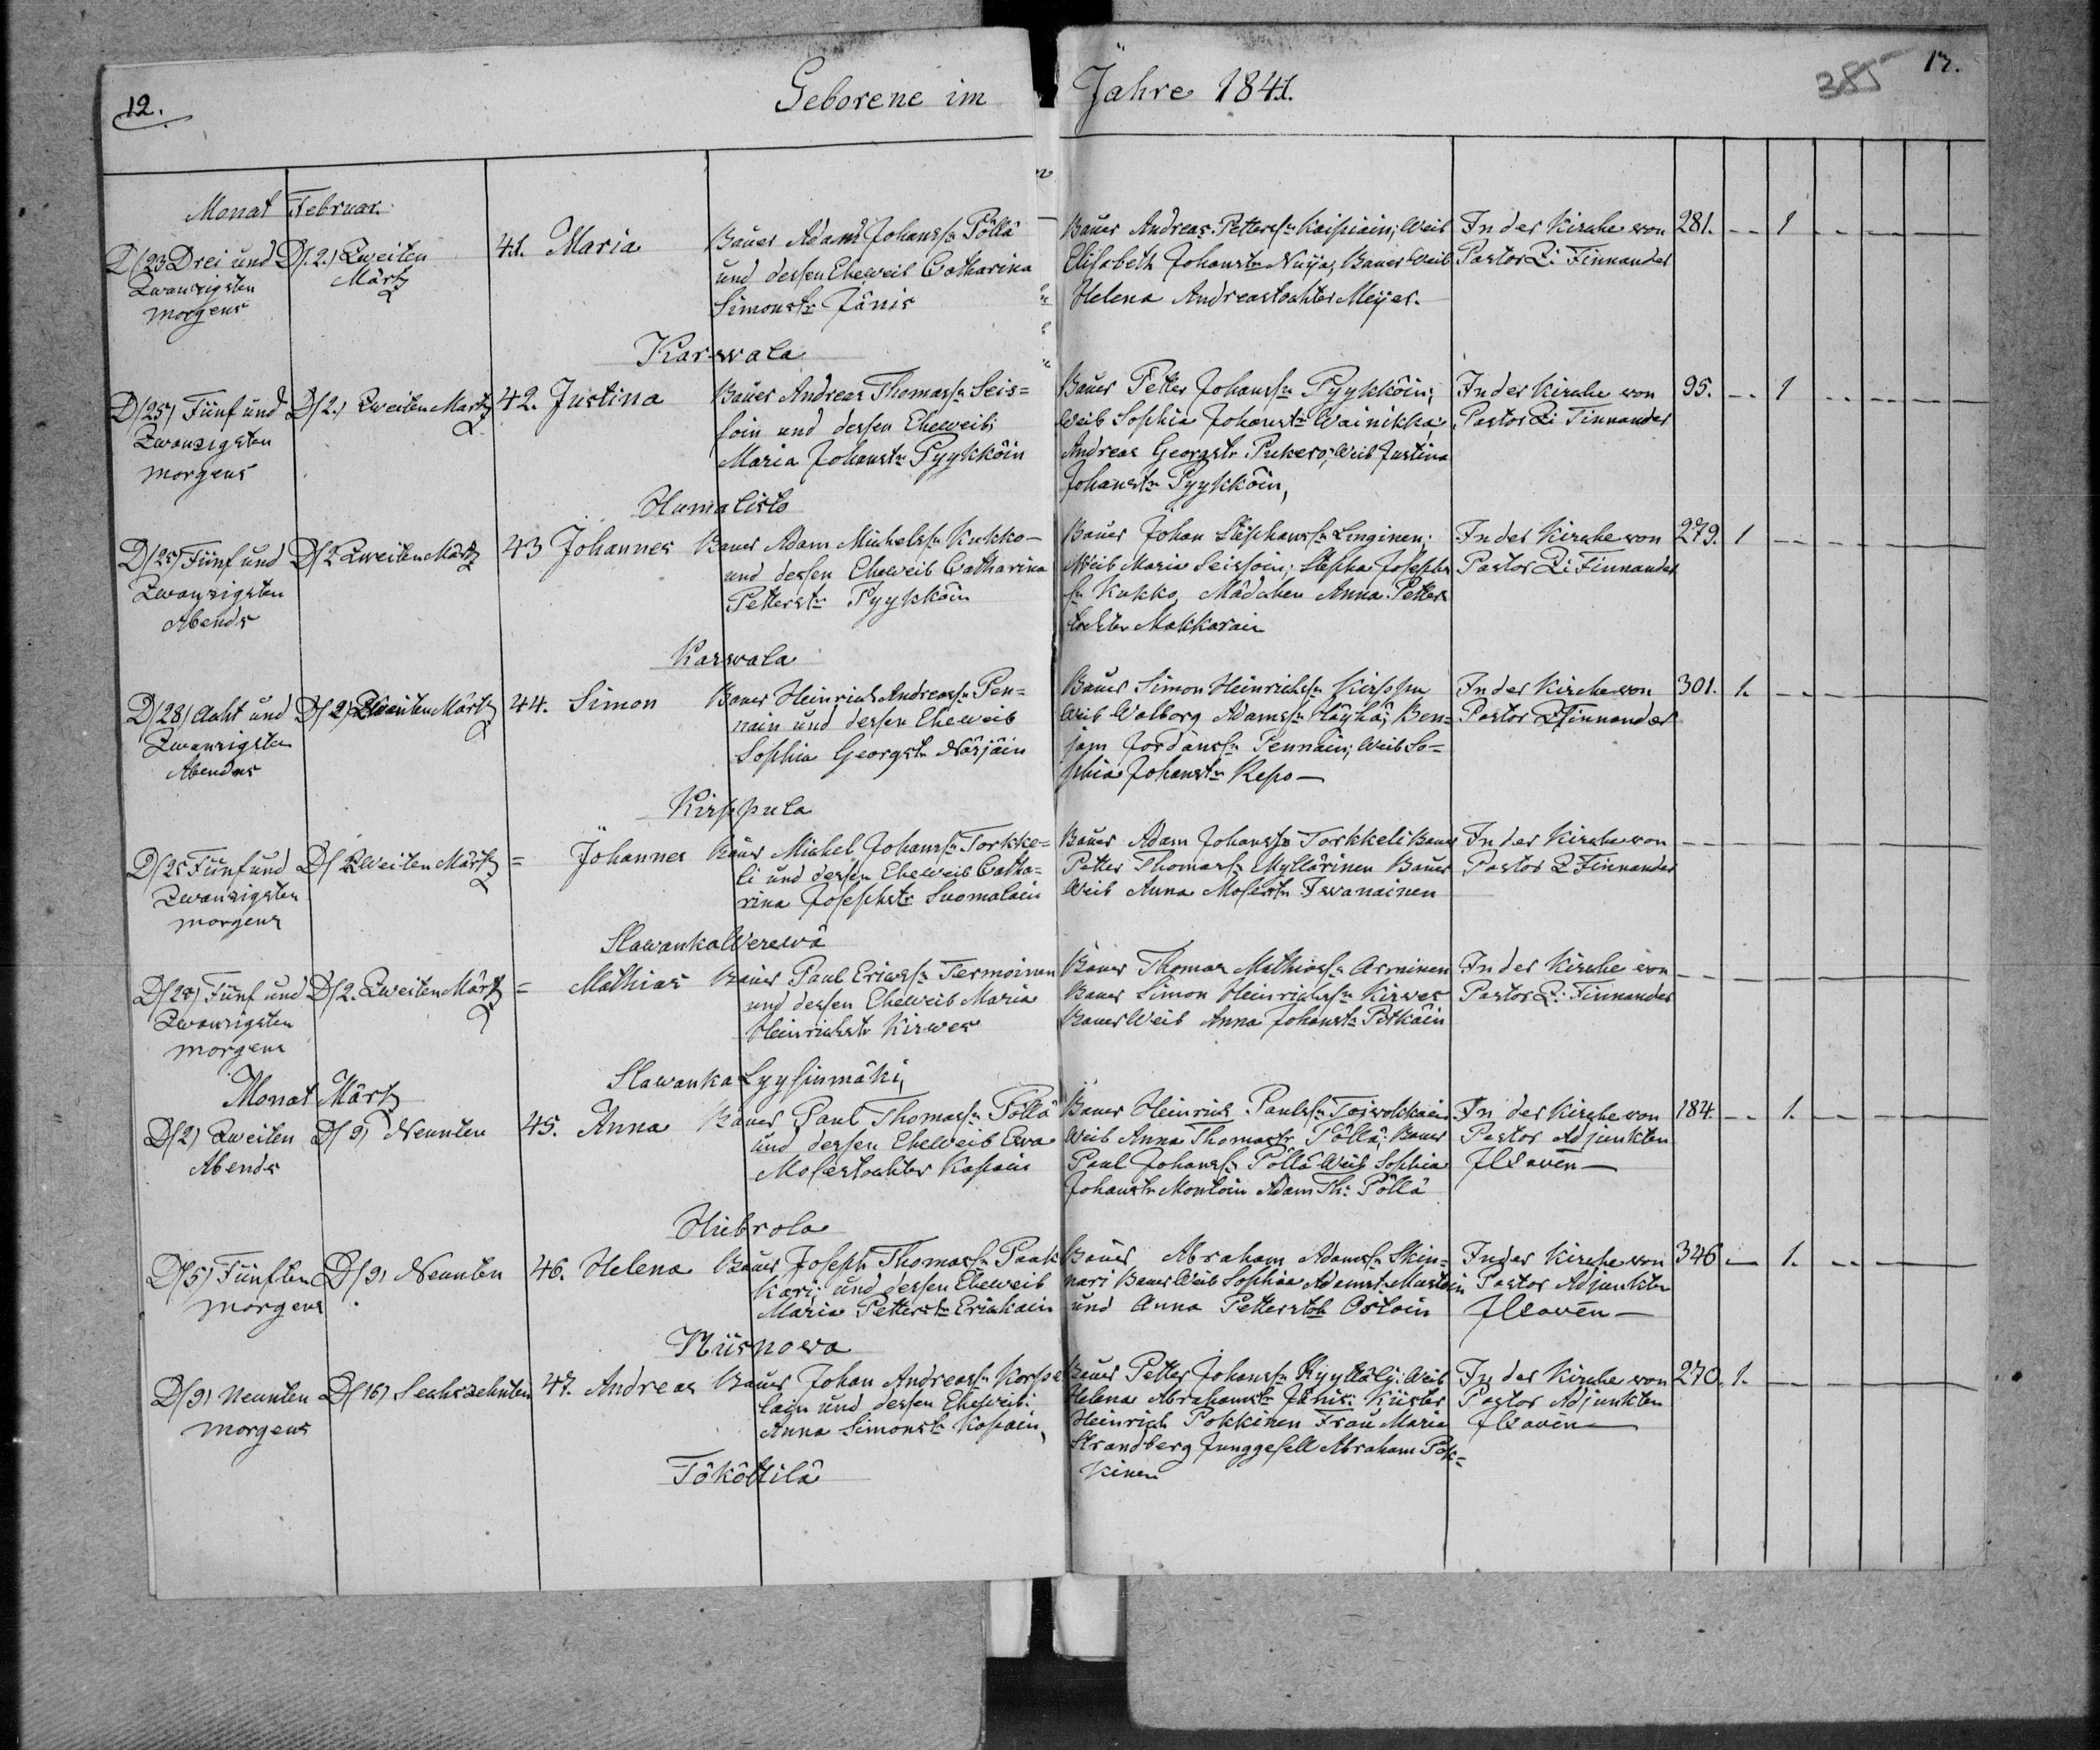 12.
Geborene im Jahre 1841.
385
12.
Monat Februar.
D/23 Drei und
Zwanzigsten
morgens
D/2.) Zweiten
Märtz
41. Maria
Bauer Adam Johanss: Pöllä
und dessen Eheweib Catharina
Simonstr Jänis
Bauer Andreas Petterss: Kaipiain; Weib
Elisabeth Johanstr Nuija, Bauer Weib
Helena Andreastochter Meijer.
In der Kirche von
Pastor Z: Finnander
281. - - 1 - - - -
Karwala
D/25) Fünf und
Zwanzigsten
morgens
D/2.) Zweiten Martz
42. Justina
Bauer Andreas Thomass: Seis=
soin und dessen Eheweib:
Maria Johanstr Pyykköin
Bauer Petter Johanss: Pyykköin;
Weib Sophia Johanstr Wainikka,
Andreas Georgstr Pukero; Weib Justina
Johanstr Pyykköin,
In der Kirche von
Pastor Z: Finnander
95. - - 1 - - - -
Humalisto
D/25) Fünf und
Zwanzigsten
Abends
D/2 Zweiten Märtz
43 Johannes
Bauer Adam Michelss: Kukko-
und dessen Eheweib Catharina
Petterstr Pyykköin
Bauer Johan Stephanss: Linginen;
Weib Maria Seissoin; Stepha Josephs
s: Kukko, Mädchen Anna Petters
tochter Makkarain
In der Kirche von
Pastor Z: Finnander
279. 1 - - - - -
Karwala
D/28) Acht und
Zwanzigsten
Abendes
D/2) Zweiten Märtz
44. Simon
Bauer Heinrich Andreass: Pen=
nain und dessen Eheweib
Sophia Georgstr Närjäin
Bauer Simon Heinrichss: Kirppu
Weib Walborg Adamss: Häyhä; Ben=
jam Jordanss: Pennäin; Weib So=
phia Johanstr Repo-
In der Kirche von
Pastor Z Finnander
301. 1. - - - - -
Kirppula
D/25 Fünf und
Zwanzigsten
morgens
D/ Zweiten Märtz
= Johannes
Bauer Michel Johanss: Torkke=
li und dessen Eheweib Catha=
rina Josephstr Suomalain
Bauer Adam Johanss: Torkkeli Bauer
Petter Thomass: Myllärinen Bauer
Weib Anna Mosestr Iwanainen
In der Kirche von
Pastor Z Finnander
Slawanka Werewä
D/25) Fünf und
Zwanzigsten
morgens
D/2. Zweiten Märtz
= Mathias
Bauer Paul Ericss: Termoinen
und dessen Eheweib Maria
Heinrichstr Kirwes
Bauer Thomas Mathiass: Arminen
Bauer Simon Heinrichss: Kirwes
Bauer Weib Anna Johanstr Pitkäin
In der Kirche von
Pastor Z: Finnander
Slawanka Lyysinmäki,
Monat Märtz
D/2) Zweiten
Abends
D/9) Neunten
45. Anna
Bauer Paul Thomass: Pöllä
und dessen Eheweib Ewa
Mosestochter Kopain
Bauer Heinrich Paulss: Toiwokkain
Weib Anna Thomastr Pöllä; Bauer
Paul Johanss: Pöllä Weib Sophia
Johanstr Montoin Adam Th: Pöllä
In der Kirche von
Pastor Adjunkten
184. - - 1. - - - -
Hubrola
D/5) Fünften
morgens
D/9) Neunten
46. Helena
Bauer Joseph Thomass: Paak
kari; und dessen Eheweib
Maria Petterstr Eriakain
Bauer Abraham Adamss: Skin=
nari Bauer Weib Sophia Adamstr Mustoin
und Anna Petterstoh Ostoin
In der Kirche von
Pastor Adjunkten
346 - 1. - - - -
Kiisnowa
D/9) Neunten
morgens
D/16) Sechszehnten
47. Andreas
Bauer Johan Andreass: Korpe
lain und dessen Eheweib:
Anna Simonstr Kopain,
Bauer Petter Johanss: Kyylläli: Weib
Helena Abrahamstr Jänis: Küster
Heinrich Pokkinen Frau Maria
Strandberg Junggesell Abraham Pok=
kinen
In der Kirche von
Pastor Adjunkten
270. 1. - - - - -
Tököttilä